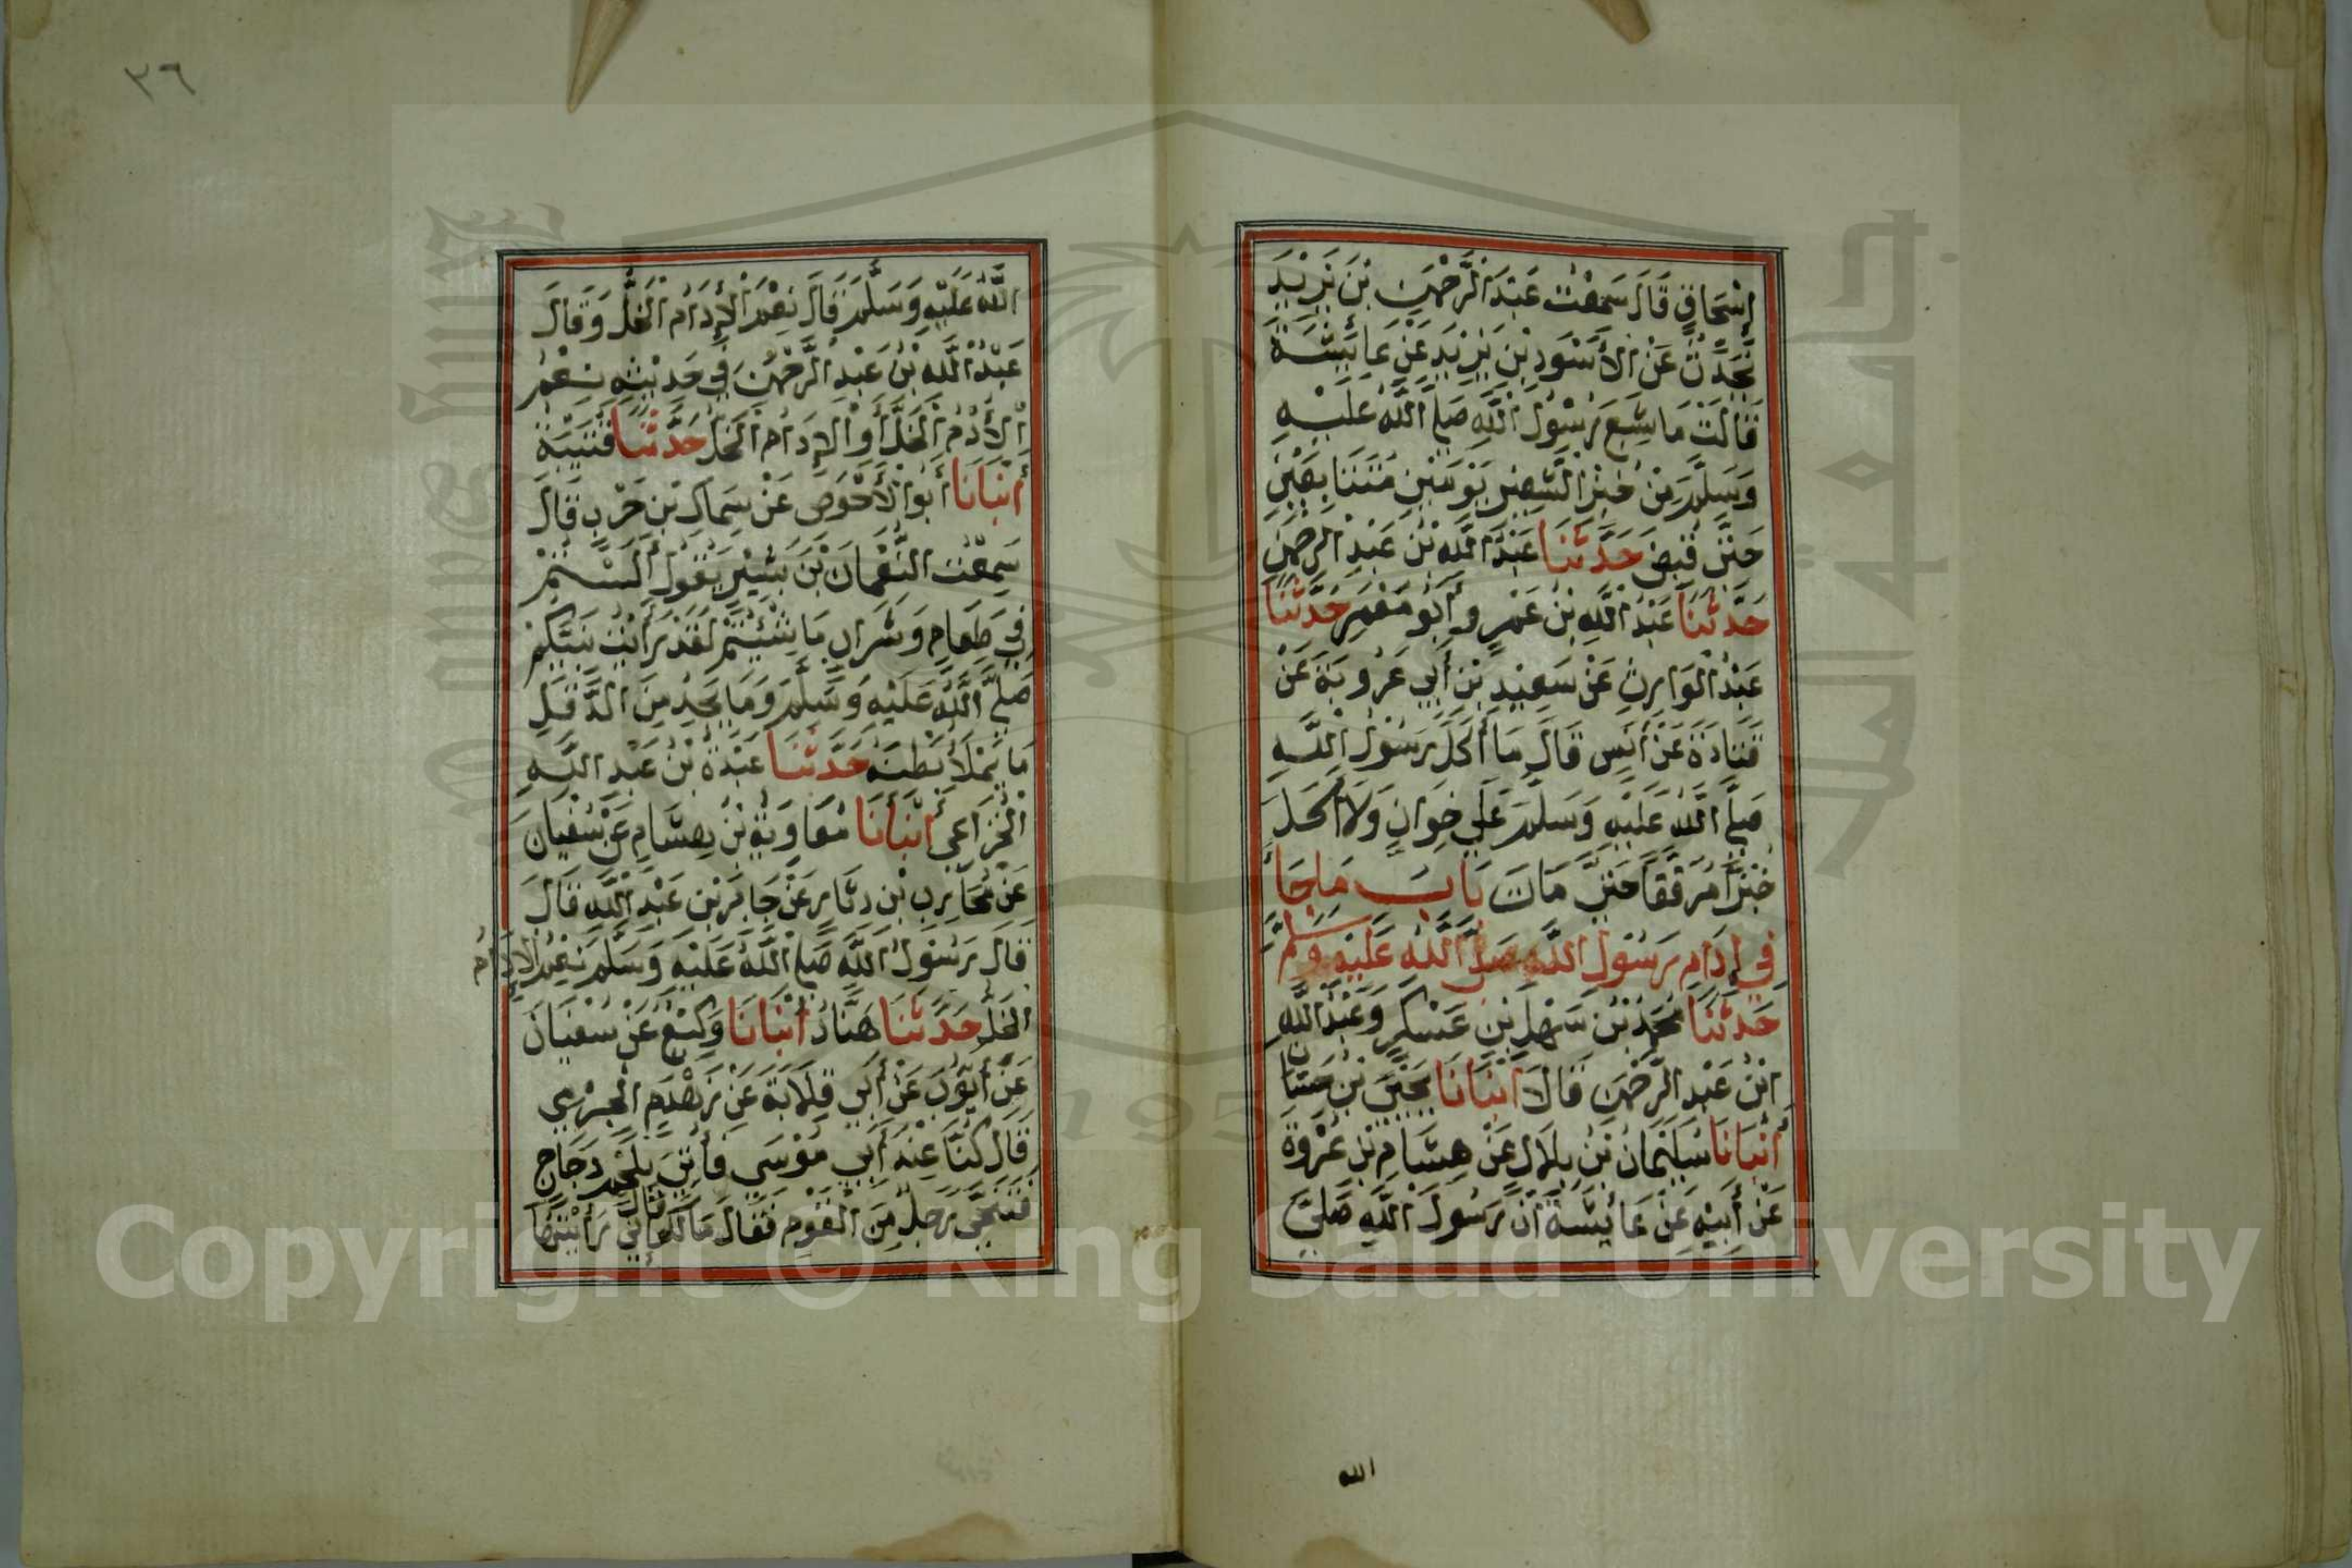 إِسْحَاقٍ قَالَ سَمِعْتُ عَبْدَ الرَّحْمٰنِ بْنَ يَزِيْدَ
يُحَدِّثُ عَنْ الأَسْوَدِ بْنِ يَزِيْدَ عَنْ عَائِشَةَ
قَالَتْ مَا شَبِعَ رَسُوْلُ اللّٰهِ صَلَّى اللّٰهُ عَلَيْهِ
وَسَلَّمَ مِنْ خُبْزِ الشَّعِيْرِ يَوْمَيْنِ مُتَتَابِعَيْنِ
حَتَّى قُبِضَ حَدَّثَنَا عَبْدُ اللّٰهِ بْنُ عَبْدِ الرَّحْمٰنِ
حَدَّثَنَا عَبْدُ اللّٰهِ بْنُ عَمْرٍو أَبُو مَعْمَرٍ حَدَّثَنَا
عَبْدُ الْوَارِثِ عَنْ سَعِيْدِ بْنِ أَبِي عَرُوبَةَ عَنْ
قَتَادَةَ عَنْ أَنَسٍ قَالَ مَا أَكَلَ رَسُوْلُ اللّٰهِ
صَلَّى اللّٰهُ عَلَيْهِ وَسَلَّمَ عَلَى خِوَانٍ وَلَا أَكَلَ
خُبْزًا مُرَقَّقًا حَتَّى مَاتَ بَابُ مَا جَاءَ
فِي إِدَامِ رَسُوْلِ اللّٰهِ صَلَّى اللّٰهُ عَلَيْهِ وَسَلَّمَ
حَدَّثَنَا مُحَمَّدُ بْنُ سَهْلِ بْنِ عَسْكَرٍ وَعَبْدُ اللّٰهِ
ابْنُ عَبْدِ الرَّحْمٰنِ قَالَا أَنْبَأَنَا يَحْيَى بْنُ حَسَّانَ
أَنْبَأَنَا سُلَيْمَانُ بْنُ بِلَالٍ عَنْ هِشَامِ بْنِ عُرْوَةَ
عَنْ أَبِيْهِ عَنْ عَائِشَةَ أَنَّ رَسُوْلَ اللّٰهِ صَلَّى
الله
٣٦
اللّٰهُ عَلَيْهِ وَسَلَّمَ قَالَ نِعْمَ الْإِدَامُ الْخَلُّ وَقَالَ
عَبْدُ اللّٰهِ بْنُ عَبْدِ الرَّحْمٰنِ فِي حَدِيْثِهِ نِعْمَ
الْأُدْمُ الْخَلُّ أَوِ الْإِدَامُ الْخَلُّ حَدَّثَنَا قُتَيْبَةُ
أَنْبَأَنَا أَبُو الْأَحْوَصِ عَنْ سِمَاكِ بْنِ حَرْبٍ قَالَ
سَمِعْتُ النُّعْمَانَ بْنَ بَشِيْرٍ يَقُوْلُ أَلَسْتُمْ
فِي طَعَامٍ وَشَرَابٍ مَا شِئْتُمْ لَقَدْ رَأَيْتُ نَبِيَّكُمْ
صَلَّى اللّٰهُ عَلَيْهِ وَسَلَّمَ وَمَا يَجِدُ مِنَ الدَّقَلِ
مَا يَمْلَأُ بَطْنَهُ حَدَّثَنَا عَبْدَةُ بْنُ عَبْدِ اللّٰهِ
الْخُزَاعِي أَنْبَأَنَا مُعَاوِيَةُ بْنُ هِشَامٍ عَنْ سُفْيَانَ
عَنْ مُحَارِبِ بْنِ دِثَارٍ عَنْ جَابِرِ بْنِ عَبْدِ اللّٰهِ قَالَ
قَالَ رَسُوْلُ اللّٰهِ صَلَّى اللّٰهُ عَلَيْهِ وَسَلَّمَ نِعْمَ الْإِدَامُ
الْخَلُّ حَدَّثَنَا هَنَّادٌ أَنْبَأَنَا وَكِيْعٌ عَنْ سُفْيَانَ
عَنْ أَيُّوْبَ عَنْ أَبِي قِلَابَةَ عَنْ زَهْدَمٍ الْجَرْمِي
قَالَ كُنَّا عِنْدَ أَبِي مُوْسَى فَأُتِيَ بِلَحْمِ دَجَاجٍ
فَتَنَحَّى رَجُلٌ مِنَ الْقَوْمِ فَقَالَ مَا لَكَ قَالَ إِنِّي رَأَيْتُهَا
Copyright © King Saud University
1957